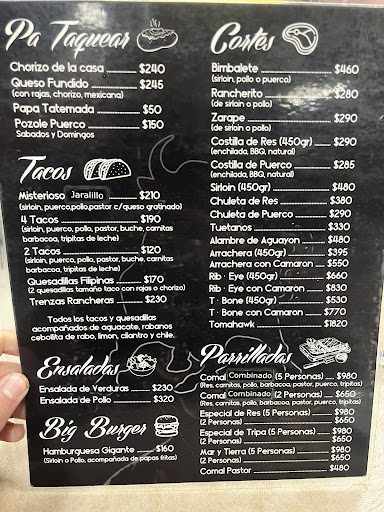 Pa Taquear
Chorizo de la casa ............ $240
Queso Fundido ............ $245
(con rajas, chorizo, mexicana)
Papa Tatemada ............ $50
Pozole Puerco ............ $150
Sabados y Domingos
Tacos
Misterioso Jaralillo ............ $210
(sirloin, puerco,pollo,pastor c/queso gratinado)
4 Tacos ............ $190
(sirloin, puerco, pollo, pastor, buche, carnitas
barbacoa, tripitas de leche)
2 Tacos ............ $120
(sirloin, puerco, pollo, pastor, buche, carnitas
barbacoa, tripitas de leche)
Quesadillas Filipinas ............ $170
(2 quesadillas tamaño taco con rajas o chorizo)
Trenzas Rancheras ............ $230
Todos los tacos y quesadillas
acompañados de aguacate, rabanos
cebollita de rabo, limon, cilantro y chile.
Ensaladas
Ensalada de Verduras ............ $230
Ensalada de Pollo ............ $320
Big Burger
Hamburguesa Gigante ............ $160
(Sirloin o Pollo, acompañada de papas fritas)
Cortes
Bimbalete ............ $460
(sirloin, pollo o puerco)
Rancherito ............ $280
(de sirloin o pollo)
Zarape ............ $290
(de sirloin o pollo)
Costilla de Res (450gr) ............ $290
(enchilada, BBQ, natural)
Costilla de Puerco ............ $285
(enchilada, BBQ, natural)
Sirloin (450gr) ............ $480
Chuleta de Res ............ $380
Chuleta de Puerco ............ $290
Tuetanos ............ $330
Alambre de Aguayon ............ $480
Arrachera (450gr) ............ $395
Arrachera con Camaron ............ $550
Rib · Eye (450gr) ............ $660
Rib · Eye con Camaron ............ $830
T · Bone (450gr) ............ $530
T · Bone con Camaron ............ $770
Tomahawk ............ $1820
Parrilladas
Comal Combinado (5 Personas) ............ $980
(Res, carnitas, pollo, barbacoa, pastor, puerco, tripitas)
Comal Combinado (2 Personas) ............ $650
(Res, carnitas, pollo, barbacoa, pastor, puerco, tripitas)
Especial de Res (5 Personas) ............ $980
(2 Personas) ............ $650
Especial de Tripa (5 Personas) ............ $980
(2 Personas) ............ $650
Mar y Tierra (5 Personas) ............ $980
(2 Personas) ............ $650
Comal Pastor ............ $480